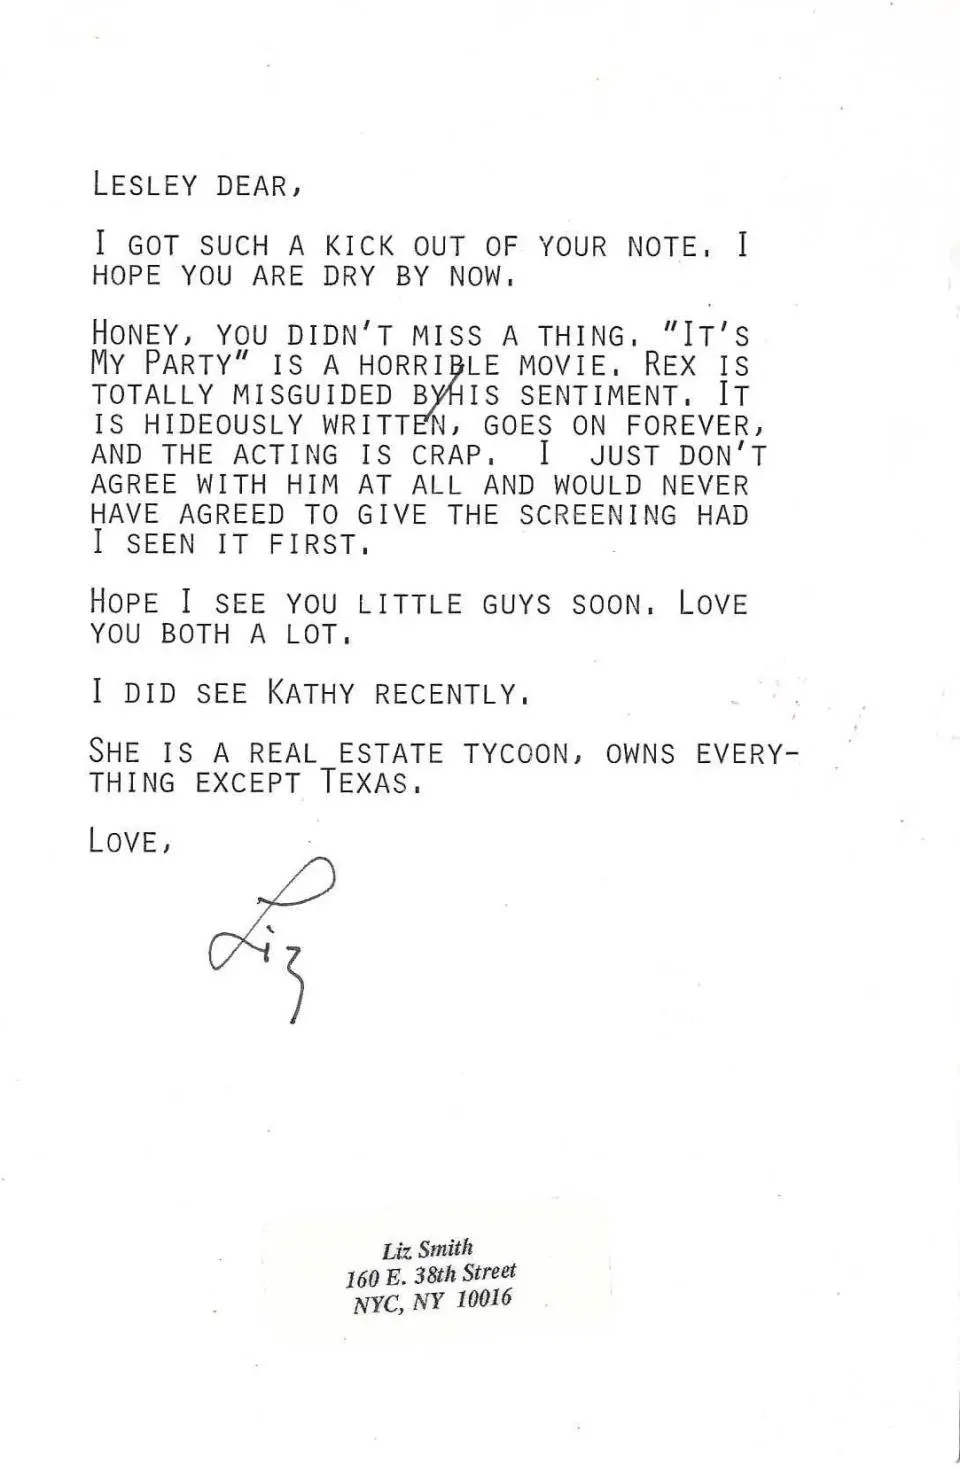 LESLEY DEAR,
I GOT SUCH A KICK OUT OF YOUR NOTE. I
HOPE YOU ARE DRY BY NOW.
HONEY, YOU DIDN'T MISS A THING. "IT'S
MY PARTY" IS A HORRIBLE MOVIE. REX IS
TOTALLY MISGUIDED BY/HIS SENTIMENT. IT
IS HIDEOUSLY WRITTEN, GOES ON FOREVER,
AND THE ACTING IS CRAP. I JUST DON'T
AGREE WITH HIM AT ALL AND WOULD NEVER
HAVE AGREED TO GIVE THE SCREENING HAD
I SEEN IT FIRST.
HOPE I SEE YOU LITTLE GUYS SOON. LOVE
YOU BOTH A LOT.
I DID SEE KATHY RECENTLY.
SHE IS A REAL ESTATE TYCOON, OWNS EVERY-
THING EXCEPT TEXAS.
LOVE,
Liz
Liz Smith
160 E. 38th Street
NYC, NY 10016